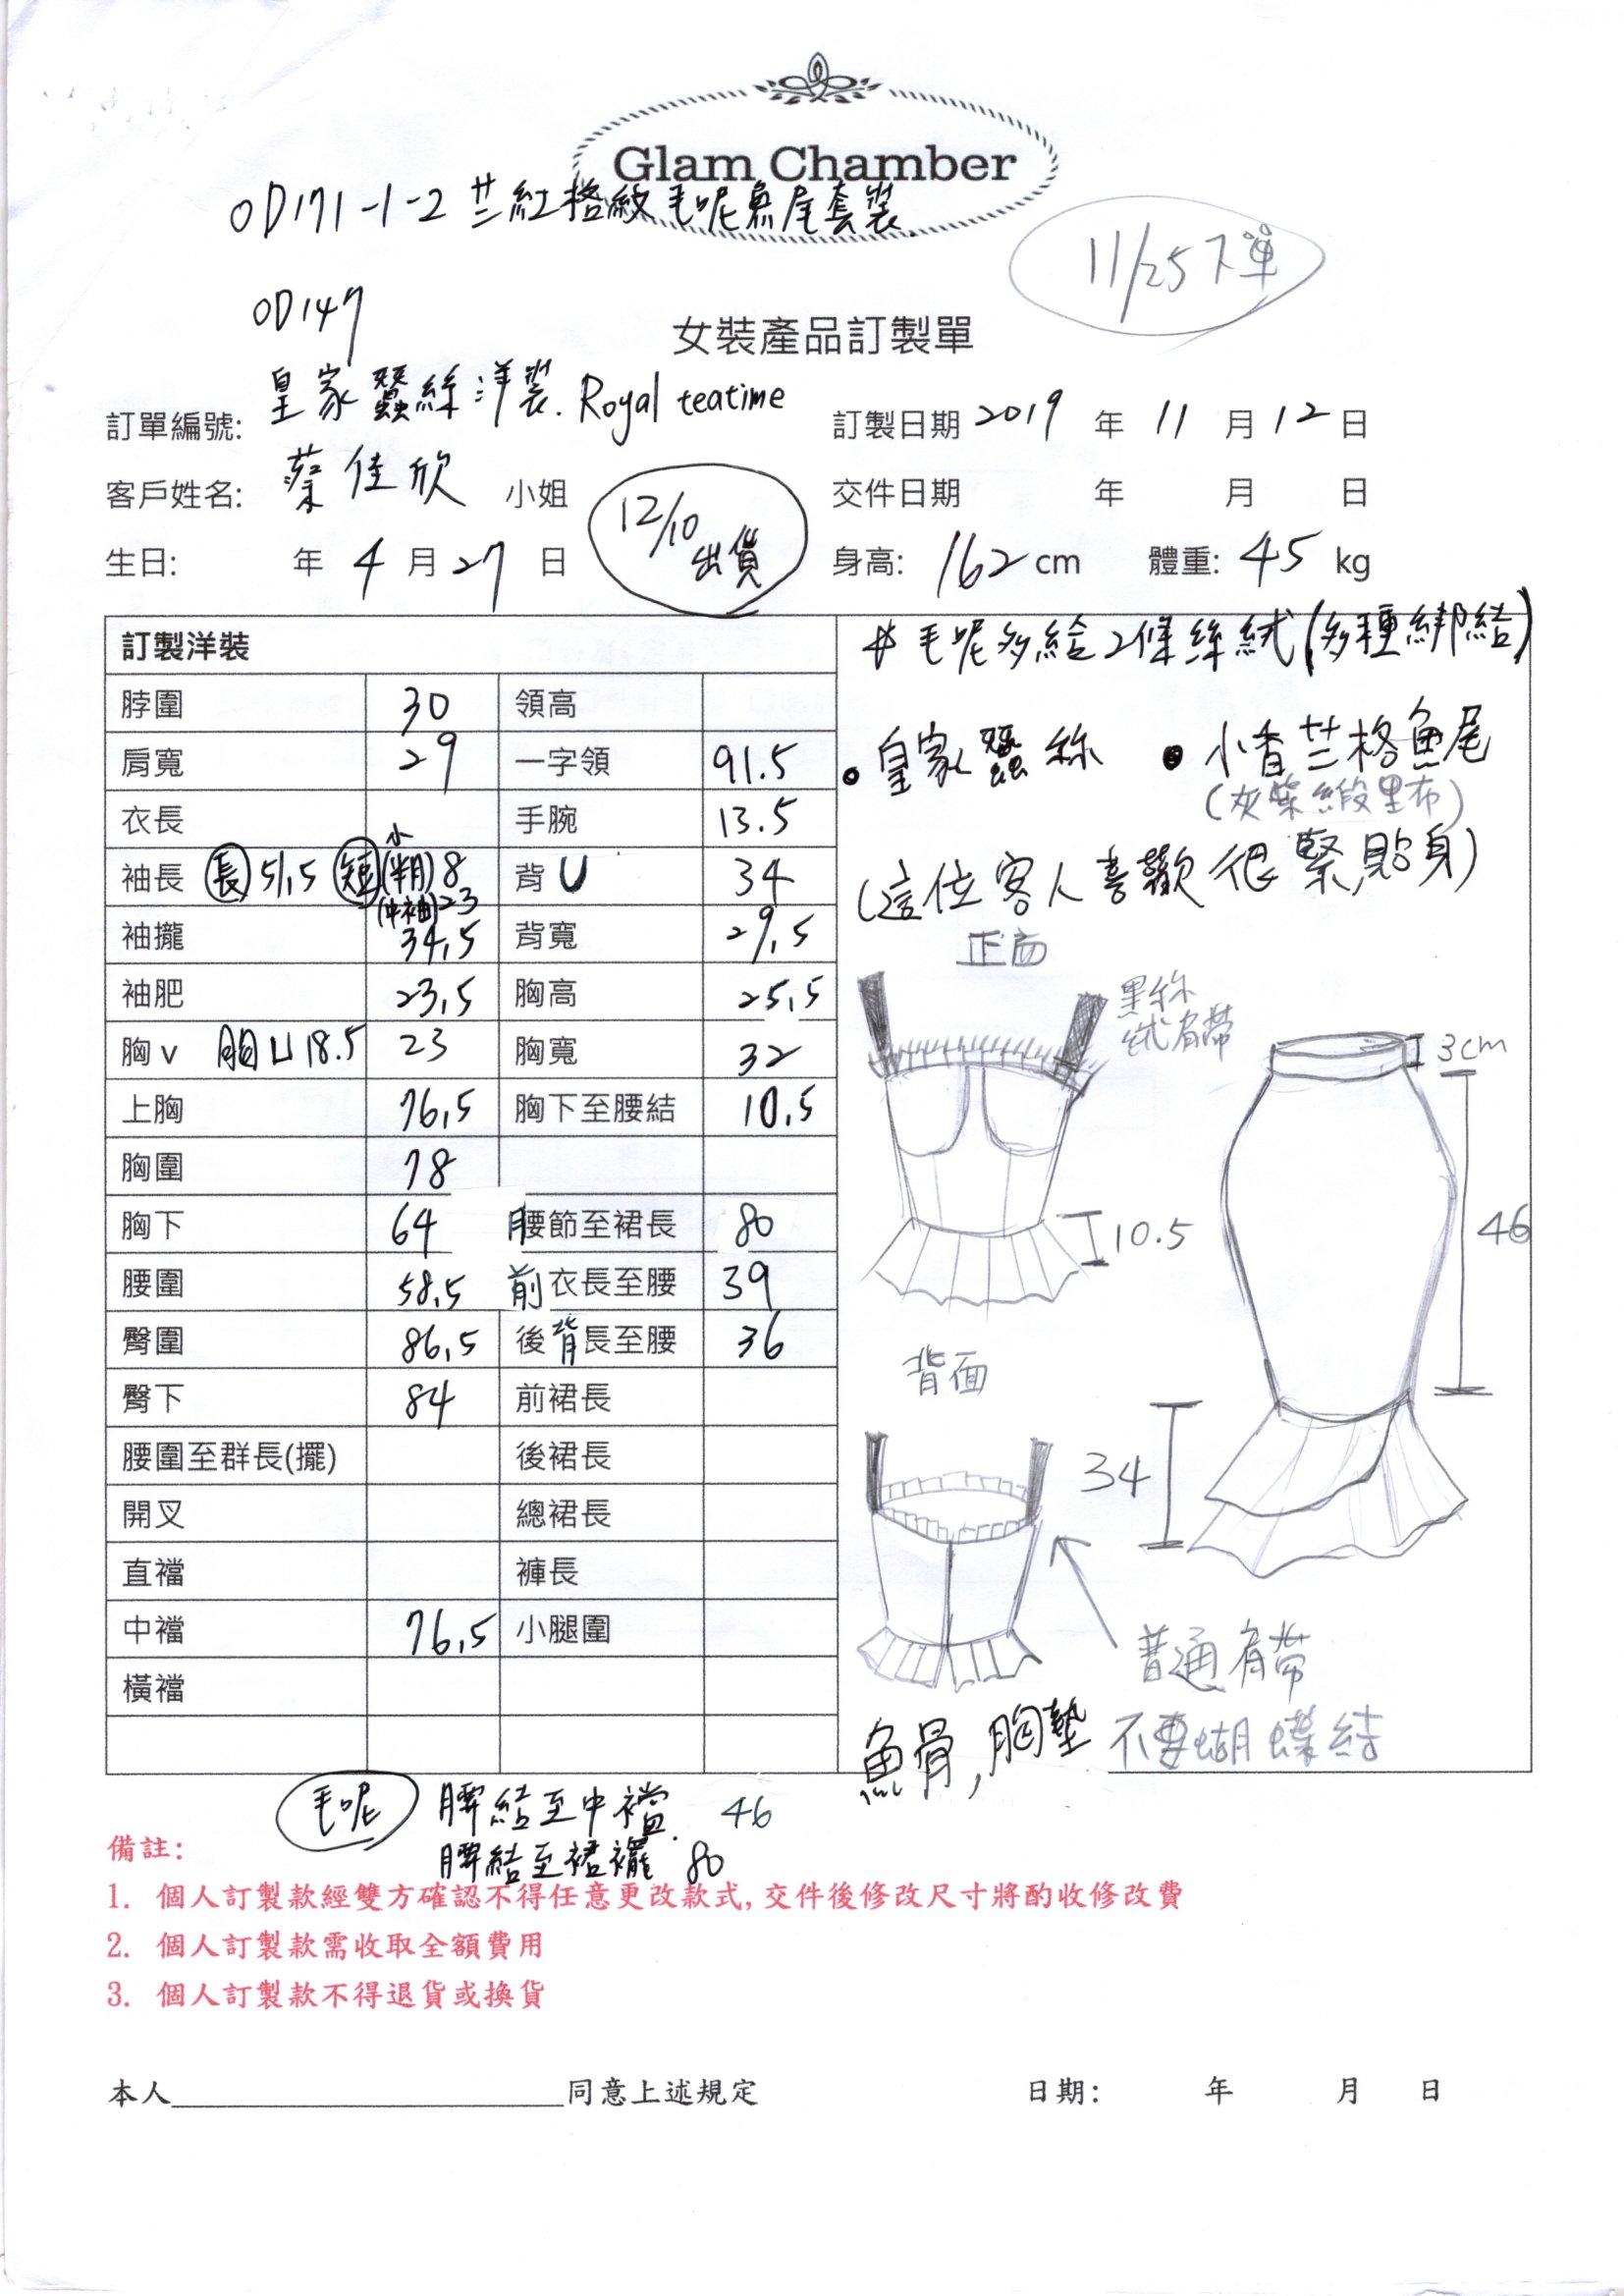 Glam Chamber
OD171-1-2 芷紅格紋毛呢魚尾套裝
11/25下單
OD147
女裝產品訂製單
皇家蠶絲洋裝. Royal teatime
訂單編號: 訂製日期 2019 年 11 月 12 日
客戶姓名: 蔡佳欣 小姐 交件日期 年 月 日
12/10 出貨
生日: 年 4 月 27 日 身高: 162 cm 體重: 45 kg
訂製洋裝
脖圍 30 領高
肩寬 29 一字領 91.5
衣長 手腕 13.5
袖長 長 51,5 短 小(半月) 8 (中袖) 23 背U 34
袖攏 34,5 背寬 29,5
袖肥 23,5 胸高 25,5
胸v 胸凵 18.5 23 胸寬 32
上胸 76,5 胸下至腰結 10,5
胸圍 78
胸下 64 腰節至裙長 80
腰圍 58,5 前衣長至腰 39
臀圍 86,5 後背長至腰 36
臀下 84 前裙長
腰圍至群長(擺) 後裙長
開叉 總裙長
直襠 褲長
中襠 76,5 小腿圍
橫襠
# 毛呢多給2條絲絨(多種綁結)
• 皇家蠶絲 • 小香芷格魚尾
(灰紫緞里布)
(這位客人喜歡很緊,貼身)
正面
黑絲絨肩帶
3cm
46
10.5
背面
34
普通肩帶
不要蝴蝶結
魚骨,胸墊
毛呢 腰結至中襠. 46
腰結至裙襬 80
備註:
1. 個人訂製款經雙方確認不得任意更改款式, 交件後修改尺寸將酌收修改費
2. 個人訂製款需收取全額費用
3. 個人訂製款不得退貨或換貨
本人____________________同意上述規定 日期: 年 月 日